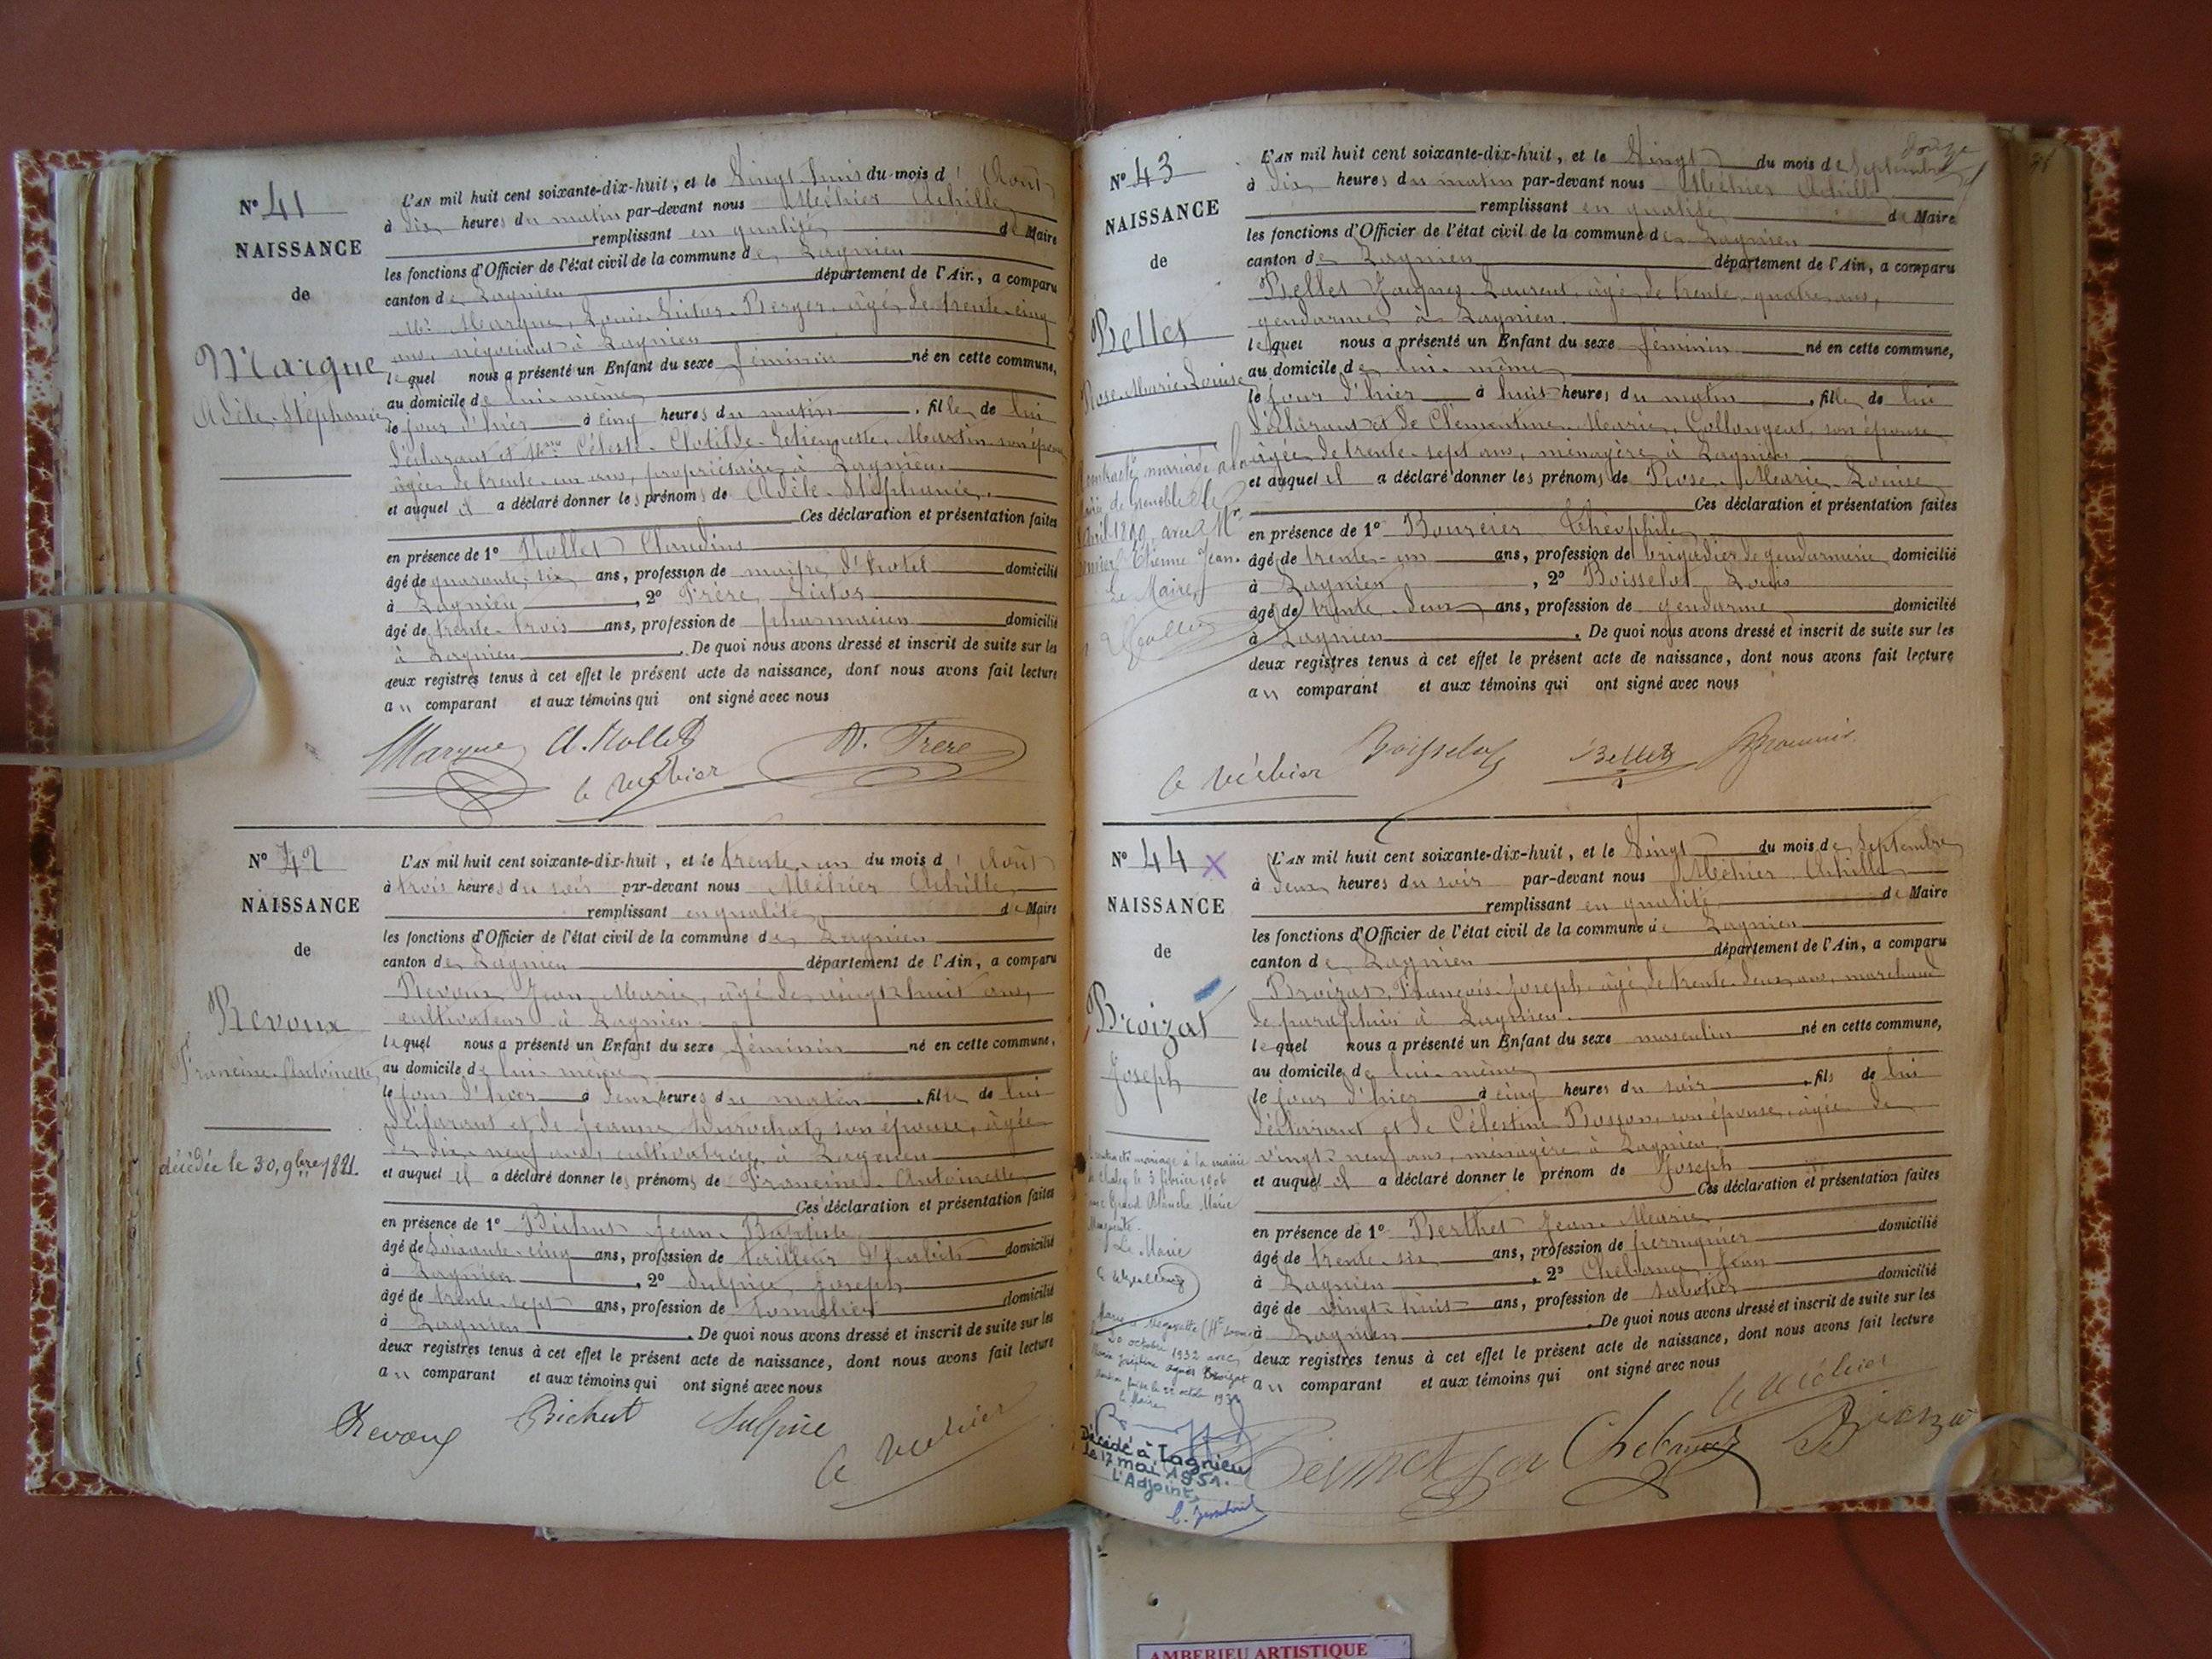 N° 41
NAISSANCE
de
Marque
Adèle Stéphanie
L'AN mil huit cent soixante-dix-huit, et le Vingt-huit du mois d'Août
à dix heures du matin par-devant nous Méhier Achille
remplissant en qualité de Maire
les fonctions d'Officier de l'état civil de la commune de Lagnieu
canton de Lagnieu département de l'Ain, a comparu
Mr Marque, Louis Victor Berger, âgé de trente-cinq
ans, négociant à Lagnieu
lequel nous a présenté un Enfant du sexe féminin né en cette commune,
au domicile de lui-même
le jour d'hier à cinq heures du matin, fille de lui
déclarant et Céleste Clotilde Martin son épouse
âgée de trente-un ans, propriétaire à Lagnieu
et auquel il a déclaré donner les prénoms de Adèle Stéphanie.
Ces déclaration et présentation faites
en présence de 1° Rollet Claudius
âgé de quarante-six ans, profession de maître d'hôtel domicilié
à Lagnieu, 2° Frère Victor
âgé de trente-trois ans, profession de pharmacien domicilié
à Lagnieu. De quoi nous avons dressé et inscrit de suite sur les
deux registres tenus à cet effet le présent acte de naissance, dont nous avons fait lecture
au comparant et aux témoins qui ont signé avec nous
Marque Cl. Rollet V. Frere
A Méhier
N° 42
NAISSANCE
de
Revoux
Francine Antoinette
décédée le 30, 9bre 1881.
L'AN mil huit cent soixante-dix-huit, et le trente-un du mois d'Août
à trois heures du soir par-devant nous Méhier Achille
remplissant en qualité de Maire
les fonctions d'Officier de l'état civil de la commune de Lagnieu
canton de Lagnieu département de l'Ain, a comparu
Revoux Jean Marie, âgé de vingt-huit ans,
cultivateur à Lagnieu
lequel nous a présenté un Enfant du sexe féminin né en cette commune,
au domicile de lui-même
le jour d'hier à deux heures du matin, fille de lui
déclarant et de Jeanne son épouse, âgée
de dix-neuf ans, cultivatrice à Lagnieu
et auquel il a déclaré donner les prénoms de Francine Antoinette
Ces déclaration et présentation faites
en présence de 1° Bichut Jean Baptiste
âgé de soixante-cinq ans, profession de tailleur d'habits domicilié
à Lagnieu, 2° Sulpice Joseph
âgé de trente-sept ans, profession de tonnelier domicilié
à Lagnieu. De quoi nous avons dressé et inscrit de suite sur les
deux registres tenus à cet effet le présent acte de naissance, dont nous avons fait lecture
au comparant et aux témoins qui ont signé avec nous
Revoux Bichut Sulpice
A Méhier
N° 43
NAISSANCE
de
Bellet
Rose Marie Louise
contracté mariage à la
mairie de Grenoble le
avril 1899, avec Mr
Etienne Jean.
Le Maire
L'AN mil huit cent soixante-dix-huit, et le Vingt du mois de Septembre
douze
à dix heures du matin par-devant nous Méhier Achille
remplissant en qualité de Maire
les fonctions d'Officier de l'état civil de la commune de Lagnieu
canton de Lagnieu département de l'Ain, a comparu
Bellet Jacques Laurent, âgé de trente-quatre ans,
gendarme à Lagnieu
lequel nous a présenté un Enfant du sexe féminin né en cette commune,
au domicile de lui-même
le jour d'hier à huit heures du matin, fille de lui
déclarant et de Clémentine Marie Collongeat, son épouse
âgée de trente-sept ans, ménagère à Lagnieu
et auquel il a déclaré donner les prénoms de Rose Marie Louise
Ces déclaration et présentation faites
en présence de 1° Bourcier Théophile
âgé de trente-un ans, profession de brigadier de gendarmerie domicilié
à Lagnieu, 2° Boisselot Louis
âgé de trente-deux ans, profession de gendarme domicilié
à Lagnieu. De quoi nous avons dressé et inscrit de suite sur les
deux registres tenus à cet effet le présent acte de naissance, dont nous avons fait lecture
au comparant et aux témoins qui ont signé avec nous
A Méhier Boisselot Bellet
N° 44 X
NAISSANCE
de
Broizat
Joseph
contracté mariage à la mairie
le 3 février 1906
avec Grand Blanche Marie
Le Maire
20 octobre 1932 avec
Le Maire
Décédé à Lagnieu
le 17 mai 1951.
L'Adjoint,
L'AN mil huit cent soixante-dix-huit, et le Vingt du mois de Septembre
à deux heures du soir par-devant nous Méhier Achille
remplissant en qualité de Maire
les fonctions d'Officier de l'état civil de la commune de Lagnieu
canton de Lagnieu département de l'Ain, a comparu
Broizat, François Joseph âgé de trente-deux ans, marchand
de parapluie à Lagnieu
lequel nous a présenté un Enfant du sexe masculin né en cette commune,
au domicile de lui-même
le jour d'hier à cinq heures du soir, fils de lui
déclarant et de Célestine Bosson, son épouse, âgée de
vingt-neuf ans, ménagère à Lagnieu
et auquel il a déclaré donner le prénom de Joseph
Ces déclaration et présentation faites
en présence de 1° Berthet Jean Marie
âgé de trente-six ans, profession de perruquier domicilié
à Lagnieu, 2° Jean
âgé de vingt-huit ans, profession de sabotier domicilié
à Lagnieu. De quoi nous avons dressé et inscrit de suite sur les
deux registres tenus à cet effet le présent acte de naissance, dont nous avons fait lecture
au comparant et aux témoins qui ont signé avec nous
A Méhier
AMBERIEU ARTISTIQUE